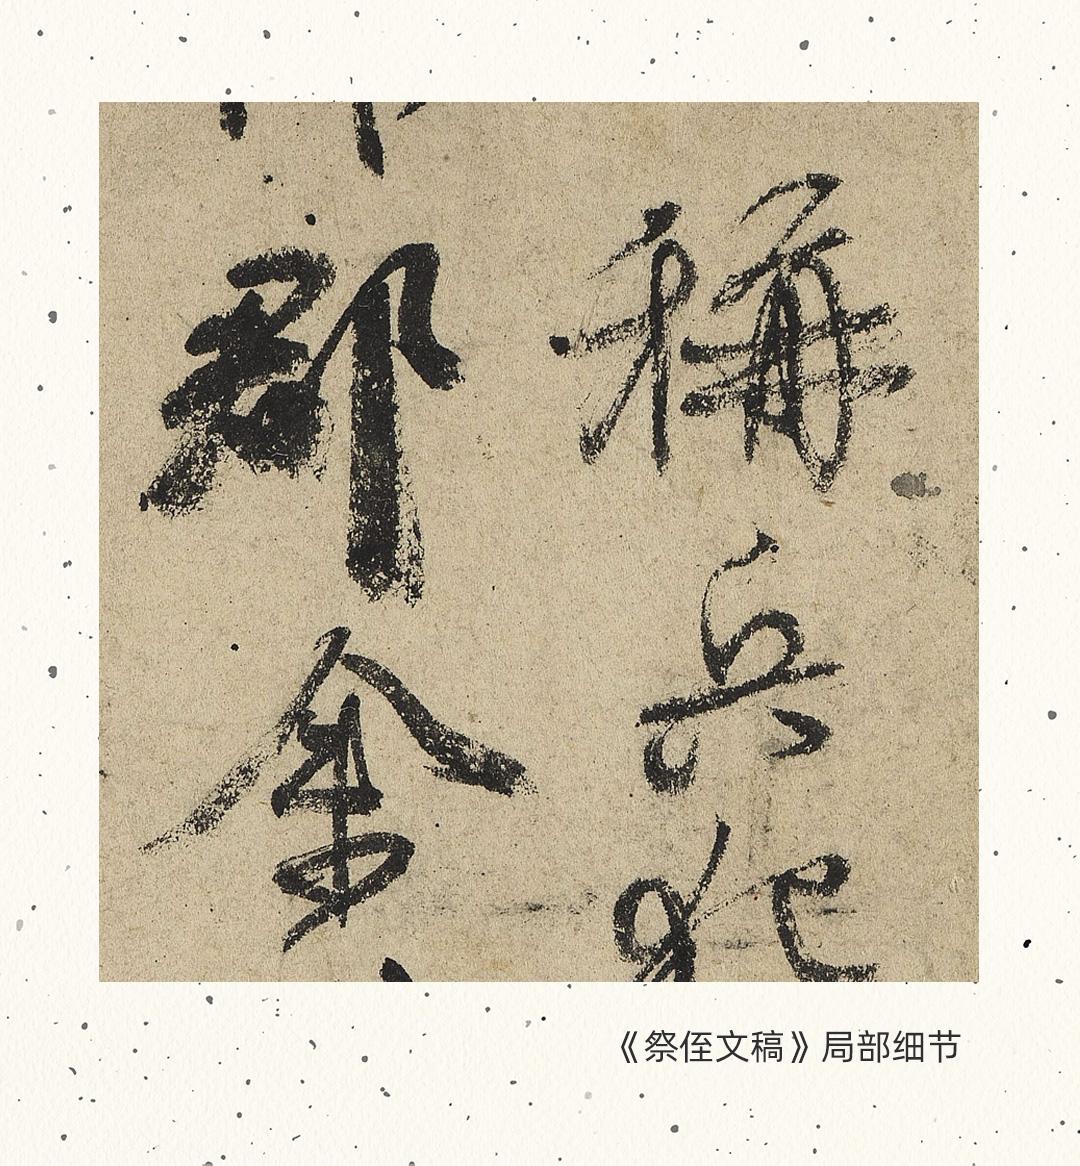 稱兵犯
郡余
《祭侄文稿》局部细节